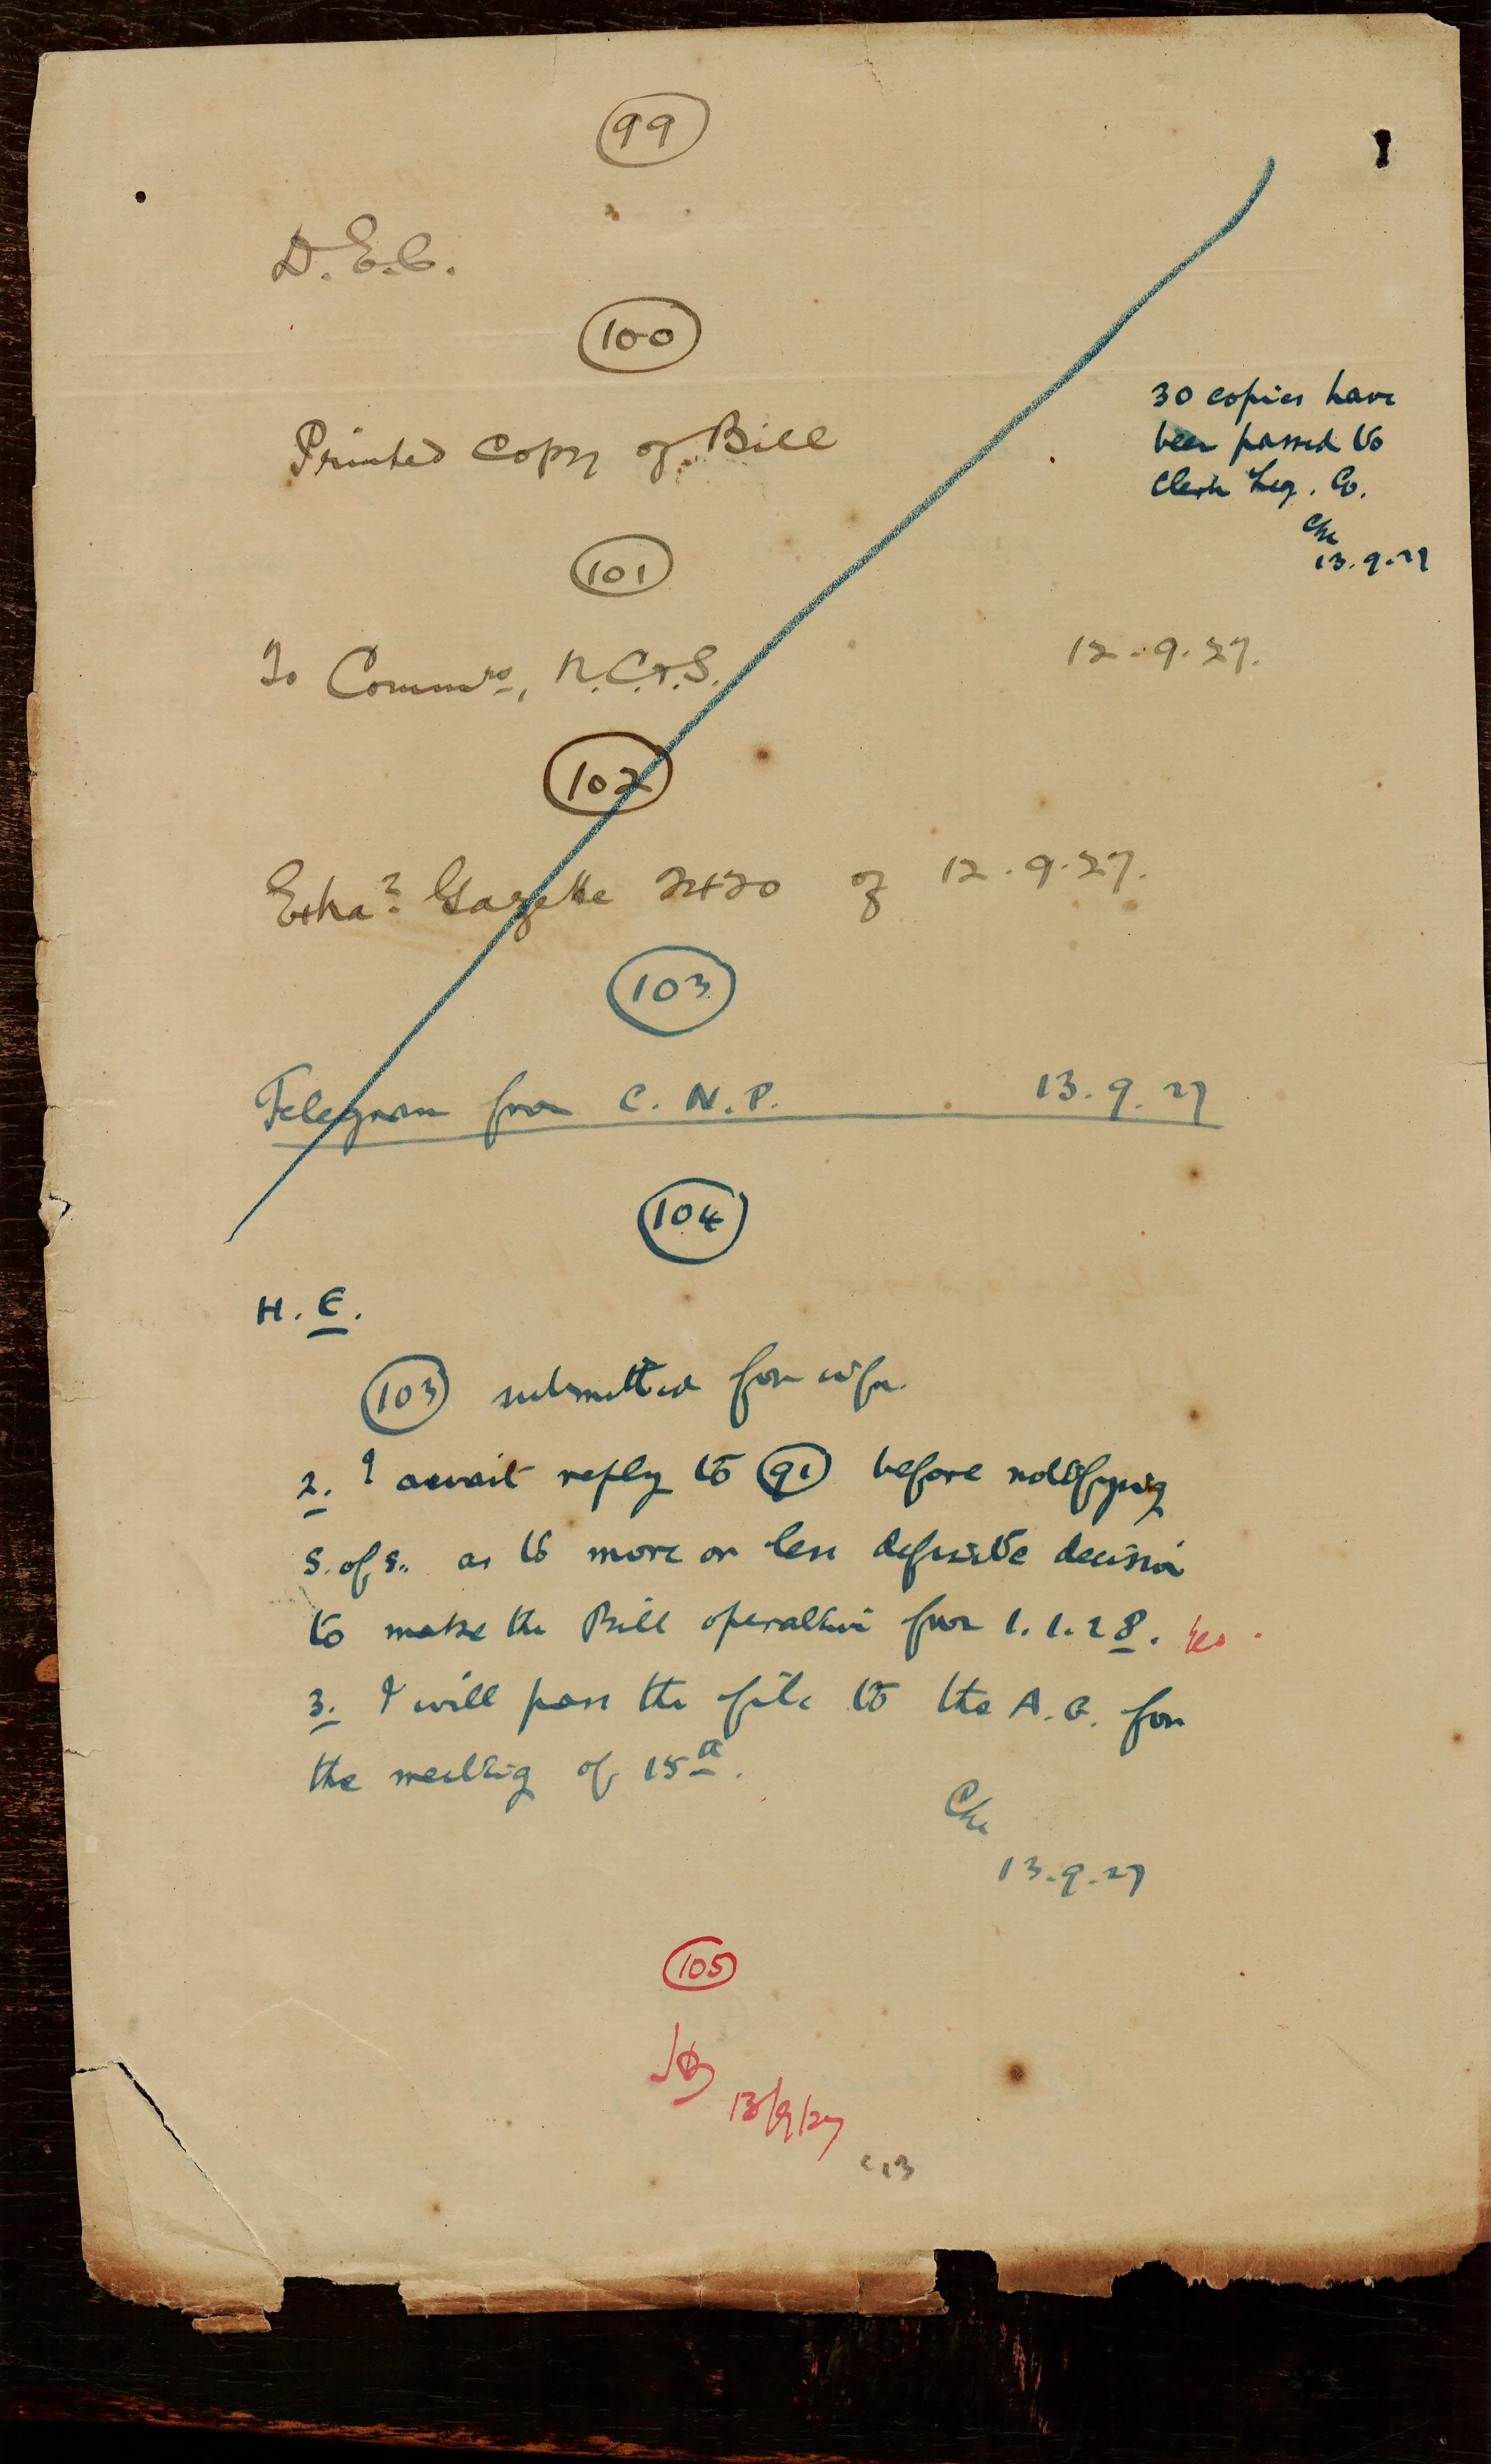 99
D.E.C.
100
30 copies have
been passed to
Clerk Leg. Co.
13.9.27
Printed Copy of Bill
101
To Commrs, N.C.&S. 12.9.27.
102
Extra? Gazette 2420 of 12.9.27.
103
Telegram from C.N.P. 13.9.27
104
H.E.
103 submitted for infn.
2. I await reply to 91 before notifying
S. of S. as to more or less definite decision
to make the Bill operative from 1.1.28. Yes.
3. I will pass the file to the A.G. for
the meeting of 15th.
13.9.27
105
13/9/27